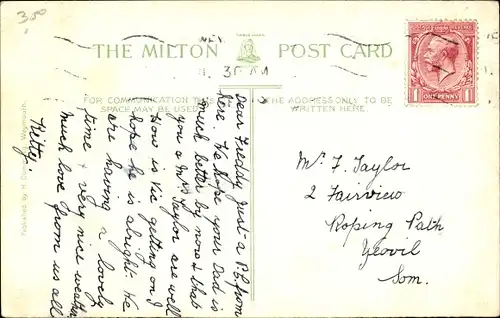 350
THE MILTON POST CARD
FOR COMMUNICATION THIS
SPACE MAY BE USED
THE ADDRESS ONLY TO BE
WRITTEN HERE.
ONE PENNY
1 1
Dear Freddy Just a P.C. from
here. We hope your Dad is
much better by now & that
you & Mrs Taylor are well
How is Vic getting on I
hope he is alright. We
are having a lovely
time & very nice weather
Much love from us all
Kitty.
Mr F. Taylor
2 Fairview
Roping Path
Yeovil
Som.
Published by H. Weymouth.